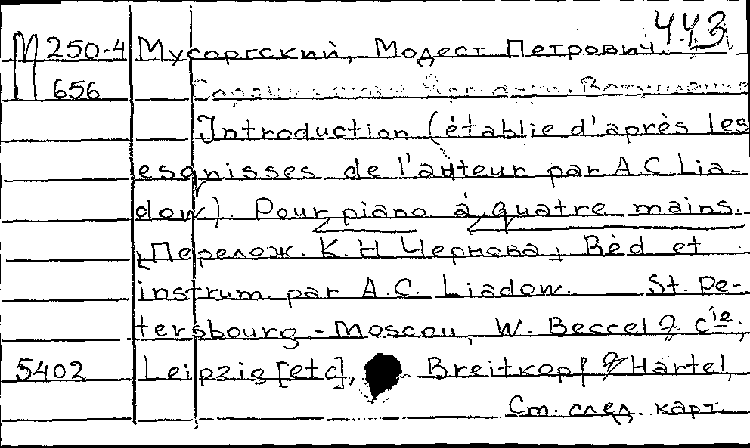 443
М 250-4 Мусоргский, Модест Петрович.
656 Сорочинская Ярмарка. Вступление
Introduction (établie d'après les
esqnisses de l'auteur par A.C. Lia-
dow). Pour piano à quatre mains.
[Перелож. К.Н. Чернова] Réd et
instrum. par A.C. Liadow. St. Pe-
tersbourg - Moscou, W. Bessel & Cie;
5402 Leipzig [etc], Breitkopf & Härtel,
См. след. карт.